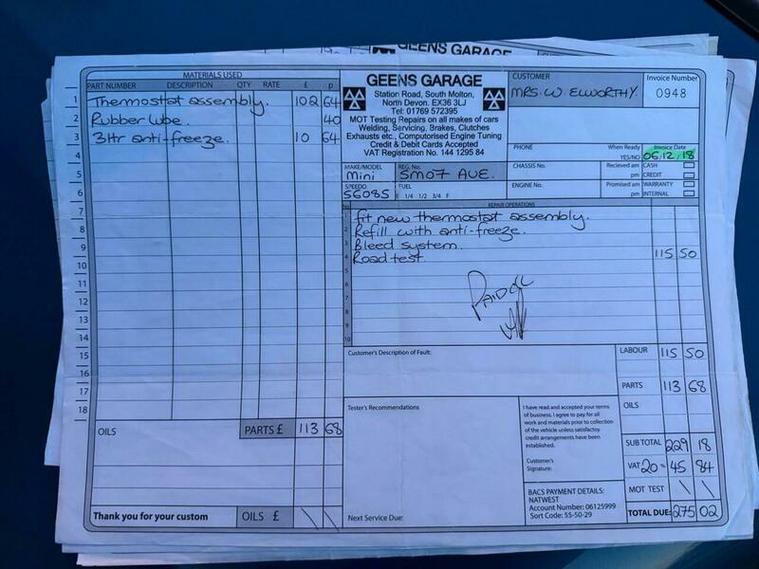 GEENS GARAGE
MATERIALS USED
PART NUMBER DESCRIPTION QTY RATE £ p
1 Thermostat assembly. 102 64
2 Rubber lube. 40
3 3ltr anti-freeze. 10 64
4
5
6
7
8
9
10
11
12
13
14
15
16
17
18
OILS PARTS £ 113 68
Thank you for your custom OILS £ \ \
GEENS GARAGE
Station Road, South Molton,
North Devon. EX36 3LJ
Tel: 01769 572395
MOT Testing Repairs on all makes of cars
Welding, Servicing, Brakes, Clutches
Exhausts etc., Computorised Engine Tuning
Credit & Debit Cards Accepted
VAT Registration No. 144 1295 84
CUSTOMER
MRS. W. ELWORTHY.
Invoice Number
0948
PHONE When Ready Invoice Date
YES/NO 06.12.18
MAKE/MODEL Mini
REG. No. SM07 AUE.
CHASSIS No. Recieved am CASH
pm CREDIT
SPEEDO 56085 FUEL E 1/4 1/2 3/4 F
ENGINE No. Promised am WARRANTY
pm INTERNAL
REPAIR OPERATIONS
1 fit new thermostat assembly.
2 Refill with anti-freeze.
3 Bleed system.
4 Road test. 115 50
5
6
7
8
9
10
PAID
Customer's Description of Fault:
LABOUR 115 50
PARTS 113 68
OILS
SUB TOTAL 229 18
VAT 20= 45 84
MOT TEST \ \
TOTAL DUE: 275 02
Tester's Recommendations
Next Service Due:
I have read and accepted your terms
of business. I agree to pay for all
work and materials prior to collection
of the vehicle unless satisfactory
credit arrangements have been
established.
Customer's
Signature:
BACS PAYMENT DETAILS:
NATWEST
Account Number: 06125999
Sort Code: 55-50-29